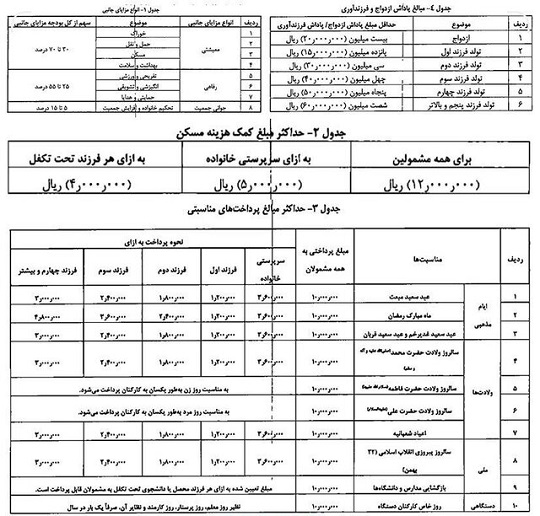 جدول ۱- انواع مزایای جانبی
ردیف | موضوع | انواع مزایای جانبی | سهم از کل بودجه مزایای جانبی
۱ | خوراک | معیشتی | ۳۰ تا ۷۰ درصد
۲ | حمل و نقل
۳ | مسکن
۴ | بهداشت و سلامت | رفاهی | ۲۵ تا ۵۵ درصد
۵ | تفریحی و ورزشی
۶ | انگیزشی و تشویقی
۷ | حمایتی و هدایا
۸ | تحکیم خانواده و افزایش جمعیت | جوانی جمعیت | ۵ تا ۱۵ درصد
جدول ۴- مبالغ پاداش ازدواج و فرزندآوری
ردیف | موضوع | حداقل مبلغ پاداش ازدواج/ پاداش فرزندآوری
۱ | ازدواج | بیست میلیون (۲۰٫۰۰۰٫۰۰۰) ریال
۲ | تولد فرزند اول | پانزده میلیون (۱۵٫۰۰۰٫۰۰۰) ریال
۳ | تولد فرزند دوم | سی میلیون (۳۰٫۰۰۰٫۰۰۰) ریال
۴ | تولد فرزند سوم | چهل میلیون (۴۰٫۰۰۰٫۰۰۰) ریال
۵ | تولد فرزند چهارم | پنجاه میلیون (۵۰٫۰۰۰٫۰۰۰) ریال
۶ | تولد فرزند پنجم و بالاتر | شصت میلیون (۶۰٫۰۰۰٫۰۰۰) ریال
جدول ۲- حداکثر مبلغ کمک هزینه مسکن
برای همه مشمولین | به ازای سرپرستی خانواده | به ازای هر فرزند تحت تکفل
(۱۲٫۰۰۰٫۰۰۰) ریال | (۵٫۰۰۰٫۰۰۰) ریال | (۴٫۰۰۰٫۰۰۰) ریال
جدول ۳- حداکثر مبالغ پرداخت‌های مناسبتی
ردیف | مناسبت‌ها | مبلغ پرداختی به همه مشمولان | نحوه پرداخت به ازای
سرپرستی خانواده | فرزند اول | فرزند دوم | فرزند سوم | فرزند چهارم و بیشتر
۱ | ایام مذهبی | عید سعید مبعث | ۱۰٫۰۰۰٫۰۰۰ | ۳٫۶۰۰٫۰۰۰ | ۱٫۲۰۰٫۰۰۰ | ۱٫۸۰۰٫۰۰۰ | ۲٫۴۰۰٫۰۰۰ | ۳٫۰۰۰٫۰۰۰
۲ | ماه مبارک رمضان | ۱۰٫۰۰۰٫۰۰۰
۳ | عید سعید غدیرخم و عید سعید قربان | ۱۰٫۰۰۰٫۰۰۰ | ۳٫۶۰۰٫۰۰۰ | ۱٫۲۰۰٫۰۰۰ | ۱٫۸۰۰٫۰۰۰ | ۲٫۴۰۰٫۰۰۰ | ۳٫۰۰۰٫۰۰۰
۴ | ولادت‌ها | سالروز ولادت حضرت محمد | ۱۰٫۰۰۰٫۰۰۰ | ۳٫۶۰۰٫۰۰۰ | ۱٫۲۰۰٫۰۰۰ | ۱٫۸۰۰٫۰۰۰ | ۲٫۴۰۰٫۰۰۰ | ۳٫۰۰۰٫۰۰۰
۵ | سالروز ولادت حضرت فاطمه | ۱۰٫۰۰۰٫۰۰۰ | به مناسبت روز زن به‌طور یکسان به کارکنان پرداخت می‌شود.
۶ | سالروز ولادت حضرت علی | ۱۰٫۰۰۰٫۰۰۰ | به مناسبت روز مرد به‌طور یکسان به کارکنان پرداخت می‌شود.
۷ | اعیاد شعبانیه | ۱۰٫۰۰۰٫۰۰۰ | ۳٫۶۰۰٫۰۰۰ | ۱٫۲۰۰٫۰۰۰ | ۱٫۸۰۰٫۰۰۰ | ۲٫۴۰۰٫۰۰۰ | ۳٫۰۰۰٫۰۰۰
۸ | ملی | سالروز پیروزی انقلاب اسلامی (۲۲ بهمن) | ۱۰٫۰۰۰٫۰۰۰ | ۳٫۶۰۰٫۰۰۰ | ۱٫۲۰۰٫۰۰۰ | ۱٫۸۰۰٫۰۰۰ | ۲٫۴۰۰٫۰۰۰ | ۳٫۰۰۰٫۰۰۰
۹ | بازگشایی مدارس و دانشگاه‌ها | ۱۰٫۰۰۰٫۰۰۰ | مبلغ تعیین شده به ازای هر فرزند محصل یا دانشجوی تحت تکفل به مشمولان قابل پرداخت است.
۱۰ | دستگاهی | روز خاص کارکنان دستگاه | ۱۰٫۰۰۰٫۰۰۰ | نظیر روز معلم، روز پرستار، روز کارمند و نظایر آن، صرفاً یک بار در سال